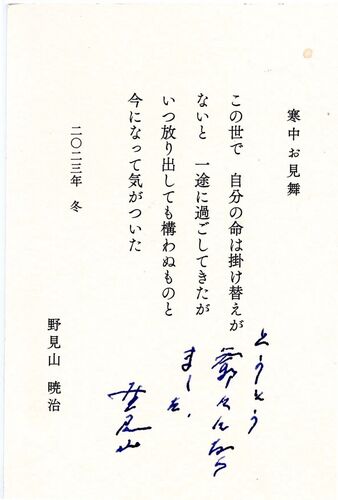 寒中お見舞
この世で 自分の命は掛け替えが
ないと 一途に過ごしてきたが
いつ放り出しても構わぬものと
今になって気がついた
二〇二三年 冬
野見山 暁治
とうとう
ました、
野見山